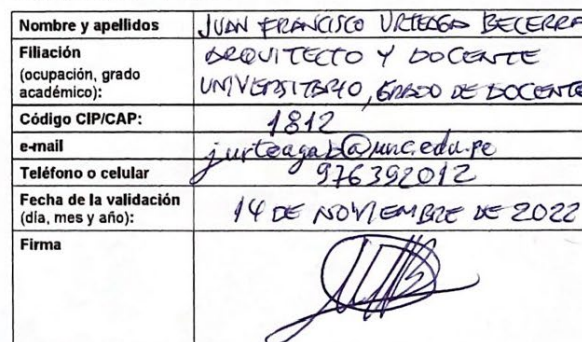 Nombre y apellidos JUAN FRANCISCO URTEAGA BECERRA
Filiación ARQUITECTO Y DOCENTE
(ocupación, grado
académico): UNIVERSITARIO, GRADO DE DOCENTE
Código CIP/CAP: 1812
e-mail jurteagab@unc.edu.pe
Teléfono o celular 976392012
Fecha de la validación
(día, mes y año): 14 DE NOVIEMBRE DE 2022
Firma